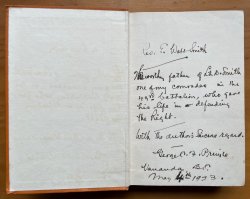 Rev. E. Webb-Smith
The worthy father of Lt. D. Smith
one of my comrades in the
49th Battalion, who gave
his life in defending
the Right.
With the author's sincere regard.
George
Vananda B.C.
May 4th 1933.